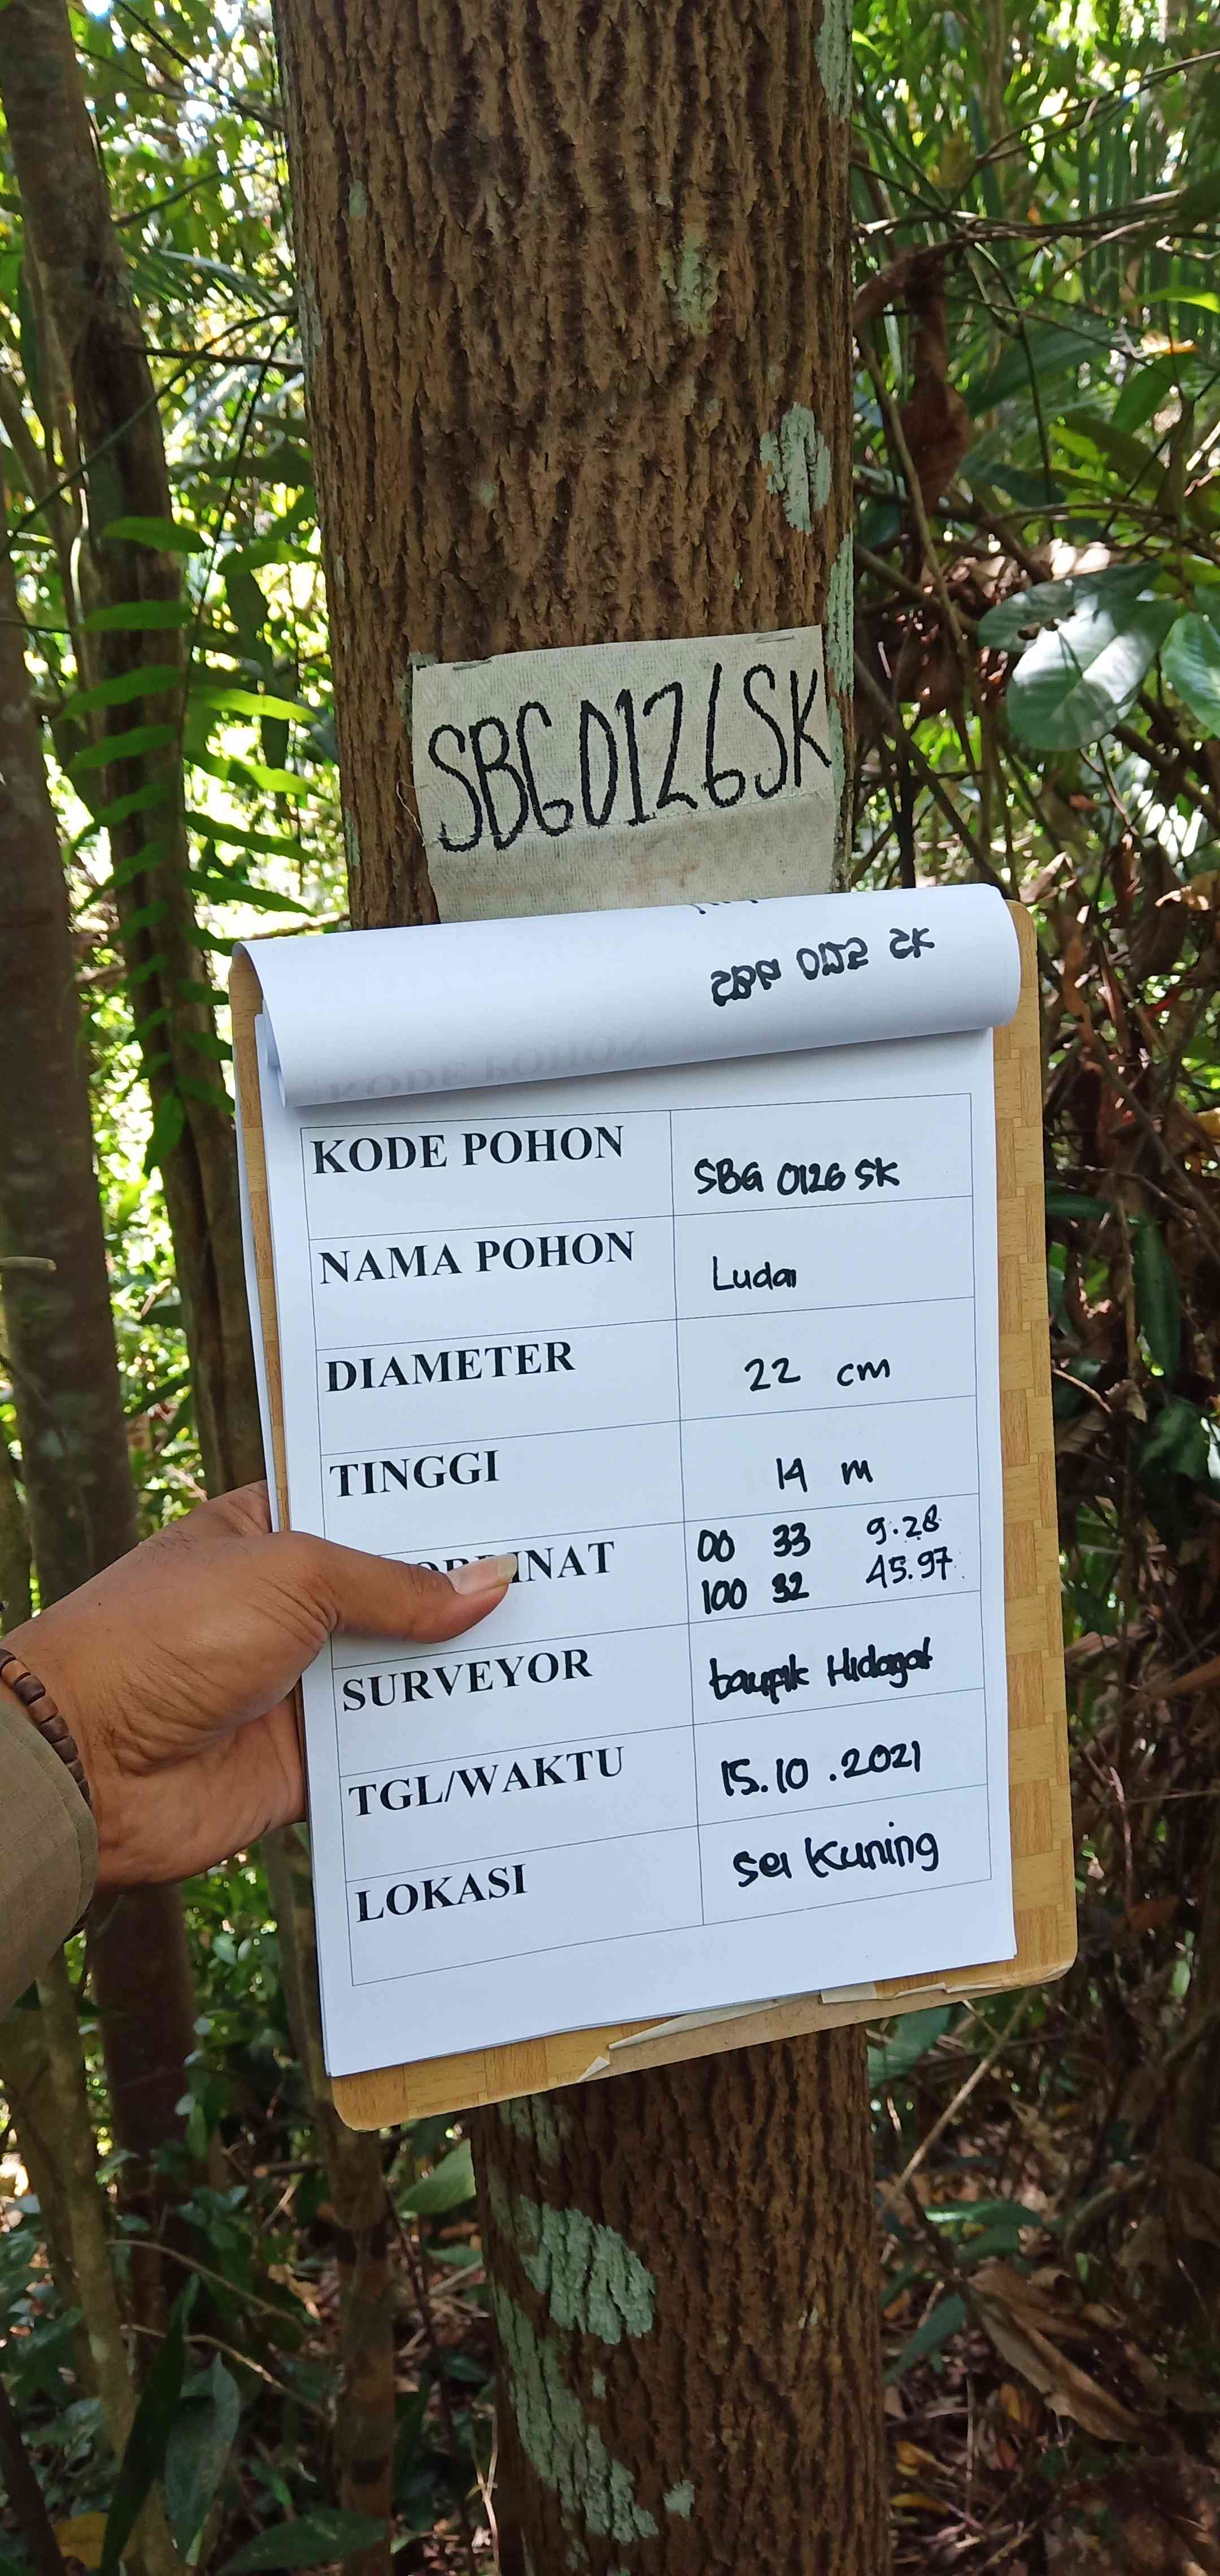 SBG0126SK
KODE POHON SBG 0126 SK
NAMA POHON Ludai
DIAMETER 22 cm
TINGGI 14 m
INAT 00 33 9.28
100 32 45.97
SURVEYOR taupik Hidayat
TGL/WAKTU 15.10.2021
LOKASI Sei Kuning